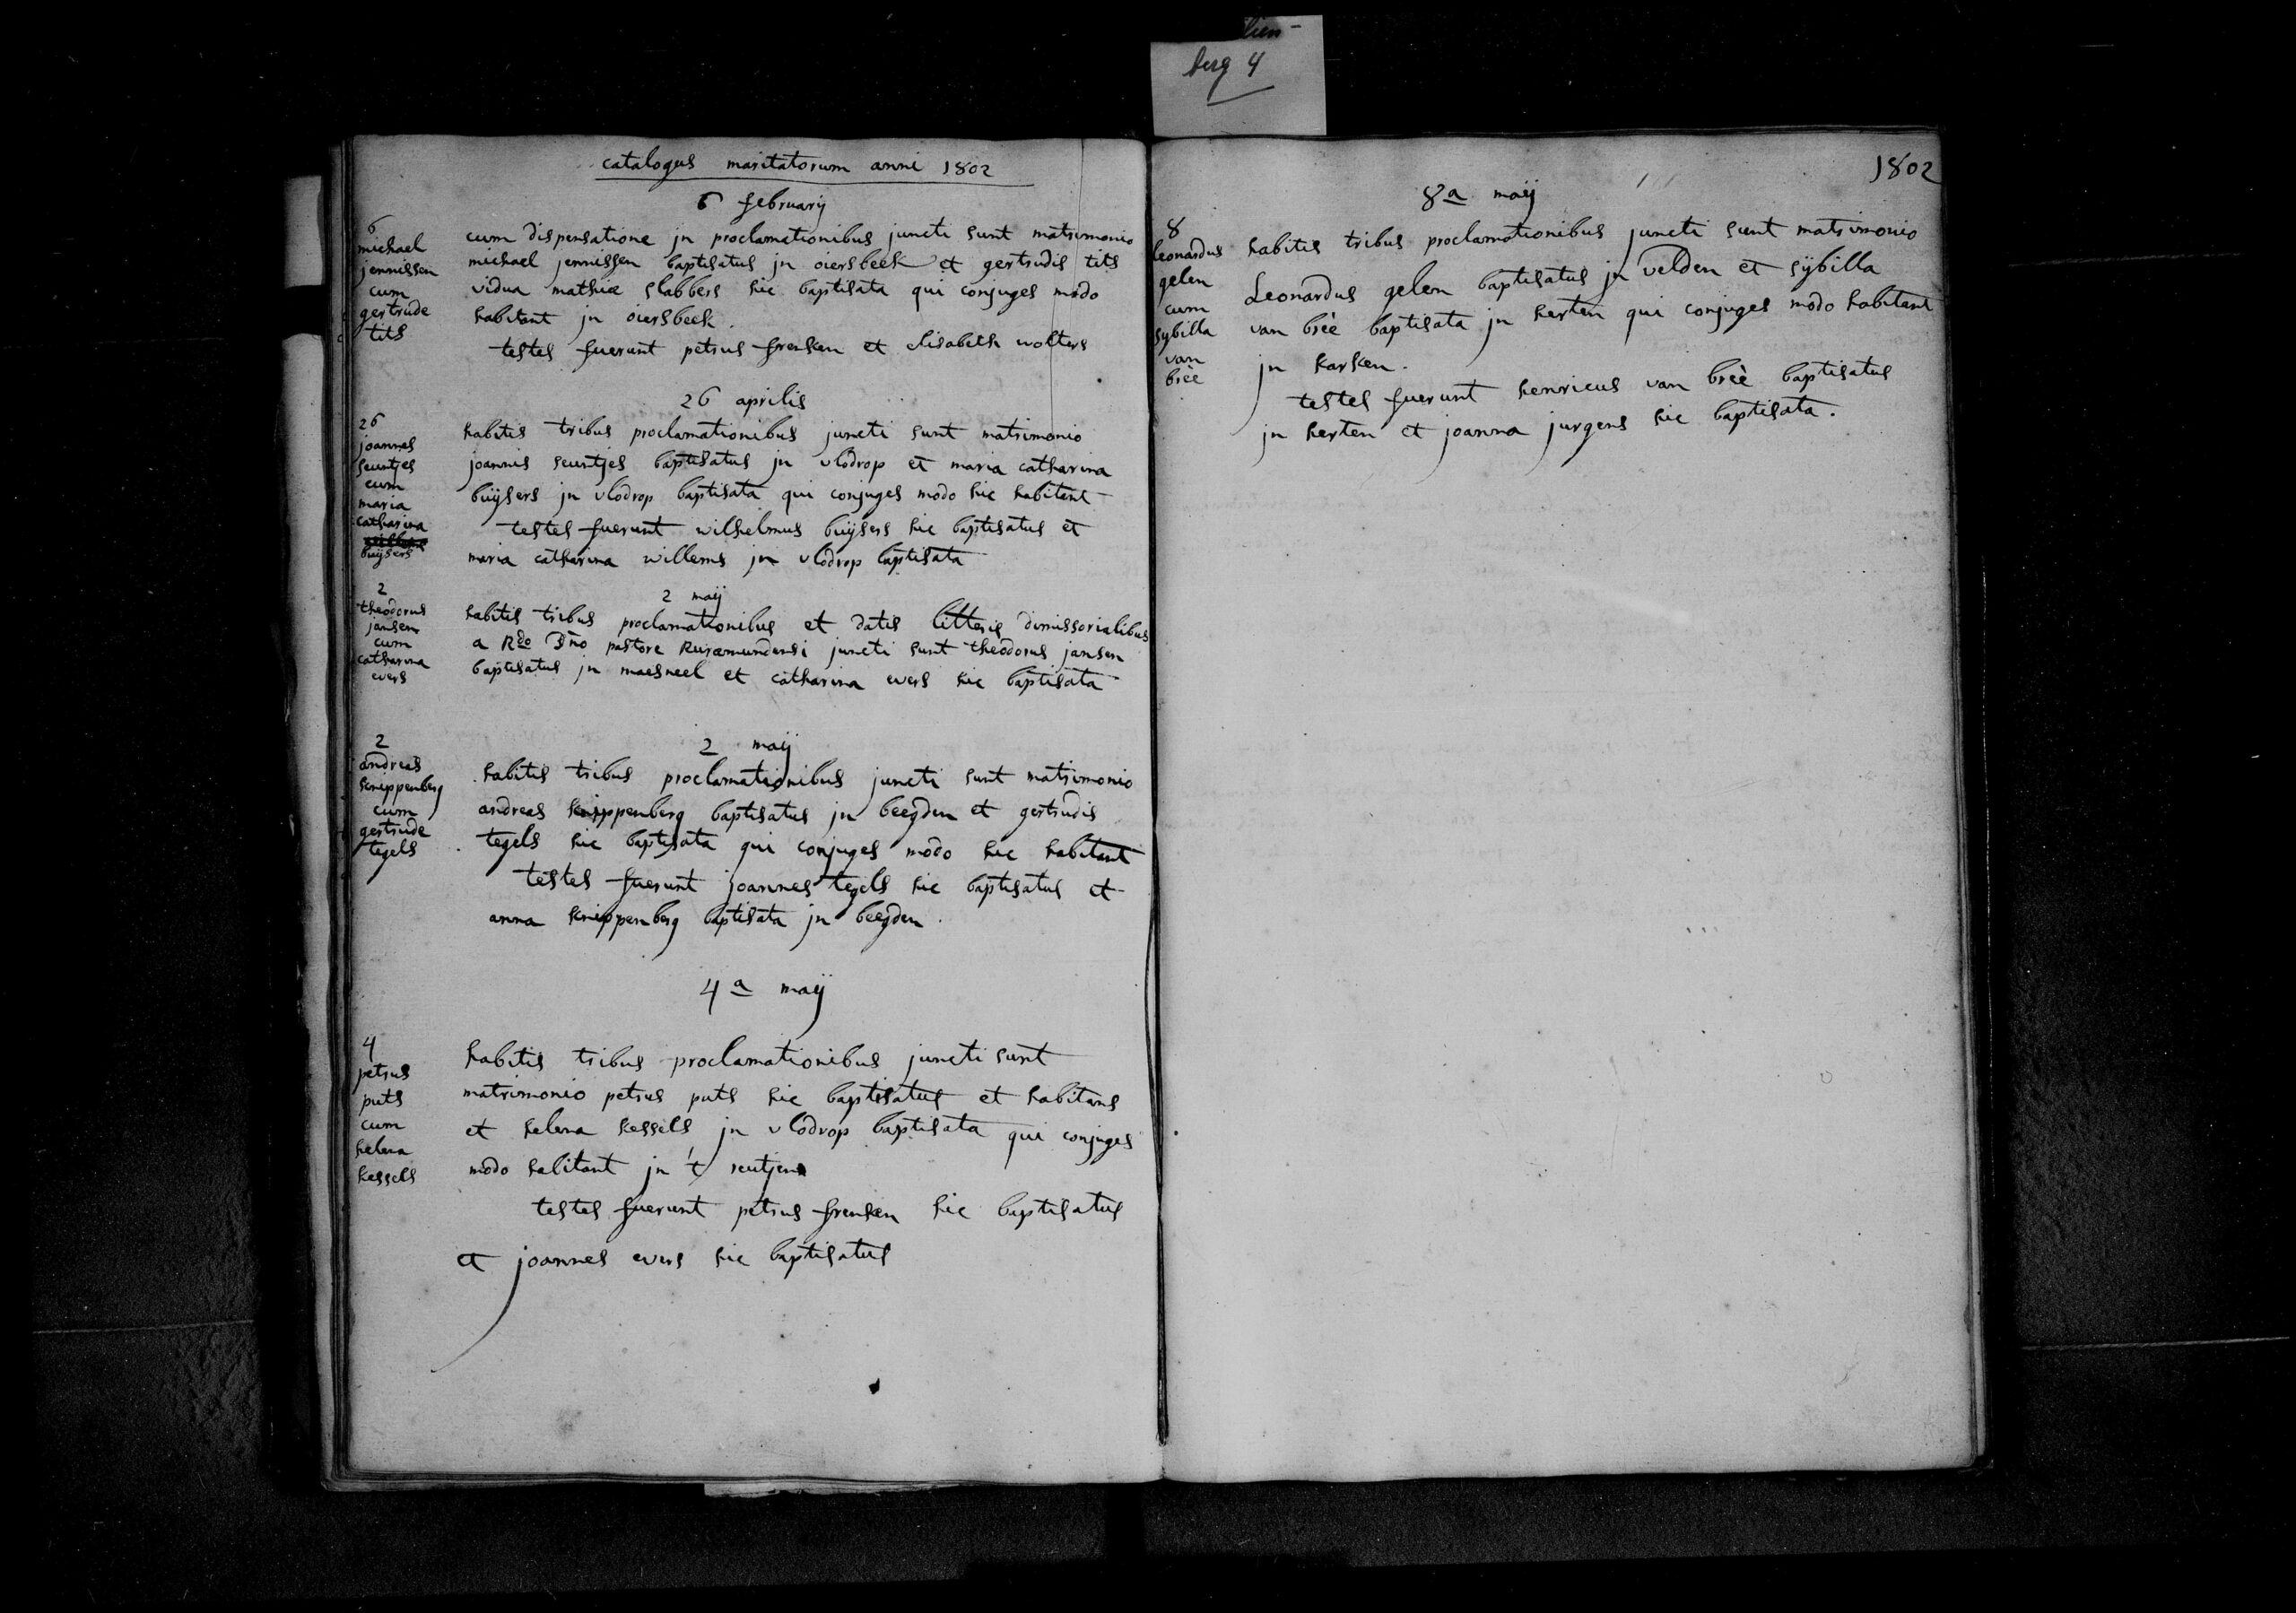 lien-
berg 4
catalogus maritatorum anni 1802
6 februarij
6
michael
jennissen
cum
gertrude
tits
cum dispensatione jn proclamationibus juncti sunt matrimonio
michael jennissen baptisatus jn oiersbeek et gertrudis tits
vidua mathiæ slabbers hic baptisata qui conjuges modo
habitant jn oiersbeek.
testes fuerunt petrus frenken et elisabeth wolters
26 aprilis
26
joannes
seuntjes
cum
maria
catharina
buÿsers
habitis tribus proclamationibus juncti sunt matrimonio
joannis seuntjes baptisatus jn vlodrop et maria catharina
buÿsers jn vlodrop baptisata qui conjuges modo hic habitant
testes fuerunt wilhelmus buÿsers hic baptisatus et
maria catharina willems jn vlodrop baptisata
2 maij
2
theodorus
jansen
cum
catharina
evers
habitis tribus proclamationibus et datis litteris dimissorialibus
a Rdo Dno pastore Ruræmundensi juncti sunt theodorus jansen
baptisatus jn maesneel et catharina evers hic baptisata
2 maij
2
andreas
knippenberg
cum
gertrude
tegels
habitis tribus proclamationibus juncti sunt matrimonio
andreas knippenberg baptisatus jn beegden et gertrudis
tegels hic baptisata qui conjuges modo hic habitant
testes fuerunt joannes tegels hic baptisatus et
anna knippenberg baptisata jn beegden.
4a maij
4
petrus
puts
cum
helena
kessels
habitis tribus proclamationibus juncti sunt
matrimonio petrus puts hic baptisatus et habitans
et helena kessels jn vlodrop baptisata qui conjuges
modo habitant jn 't reutjen
testes fuerunt petrus frenken hic baptisatus
et joannes evers hic baptisatus
1802
8a maij
8
leonardus
gelen
cum
sybilla
van
breè
habitis tribus proclamationibus juncti sunt matrimonio
Leonardus gelen baptisatus jn velden et sÿbilla
van breè baptisata jn herten qui conjuges modo habitant
jn karken.
testes fuerunt henricus van breè baptisatus
jn herten et joanna jurgens hic baptisata.